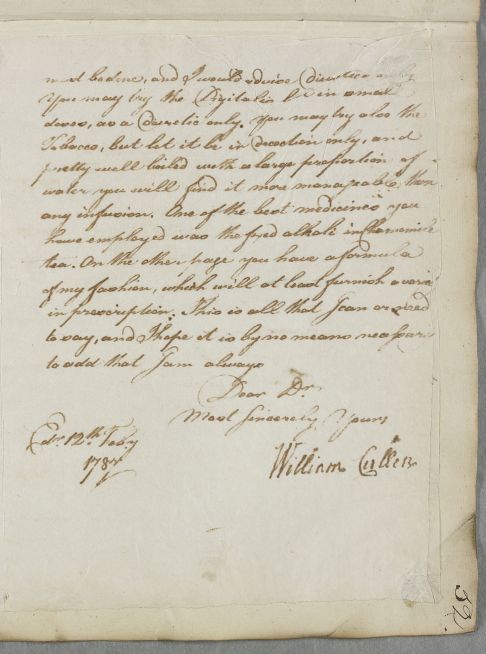 must bedone, and I would advise Diuretics only
You may try the Digitalis in small
doses, as a Diuretic only. You may try also the
Tobacco, but let it be in Decoction only, and
pretty well boiled with a large proportion of
water you will find it more manageable than
any infusion. One of the best medicines you
have employed was the fixed alkali in
tea. On the other page you have a formula
of my fashion, which will at least furnish a variety
in prescription. This is all that I can or need
to say, and I hope it is by no means necessary
to add that I am always
Dear Dr.
Most Sincerely Yours
Edr. 12th. Feby
William Cullen
52.